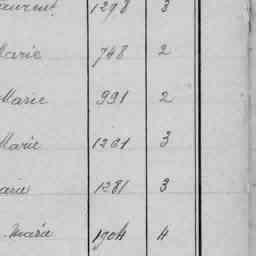 Laurent 1298 3
Marie 748 2
Marie 991 2
Marie 1201 3
1281 3
Maria 1904 4